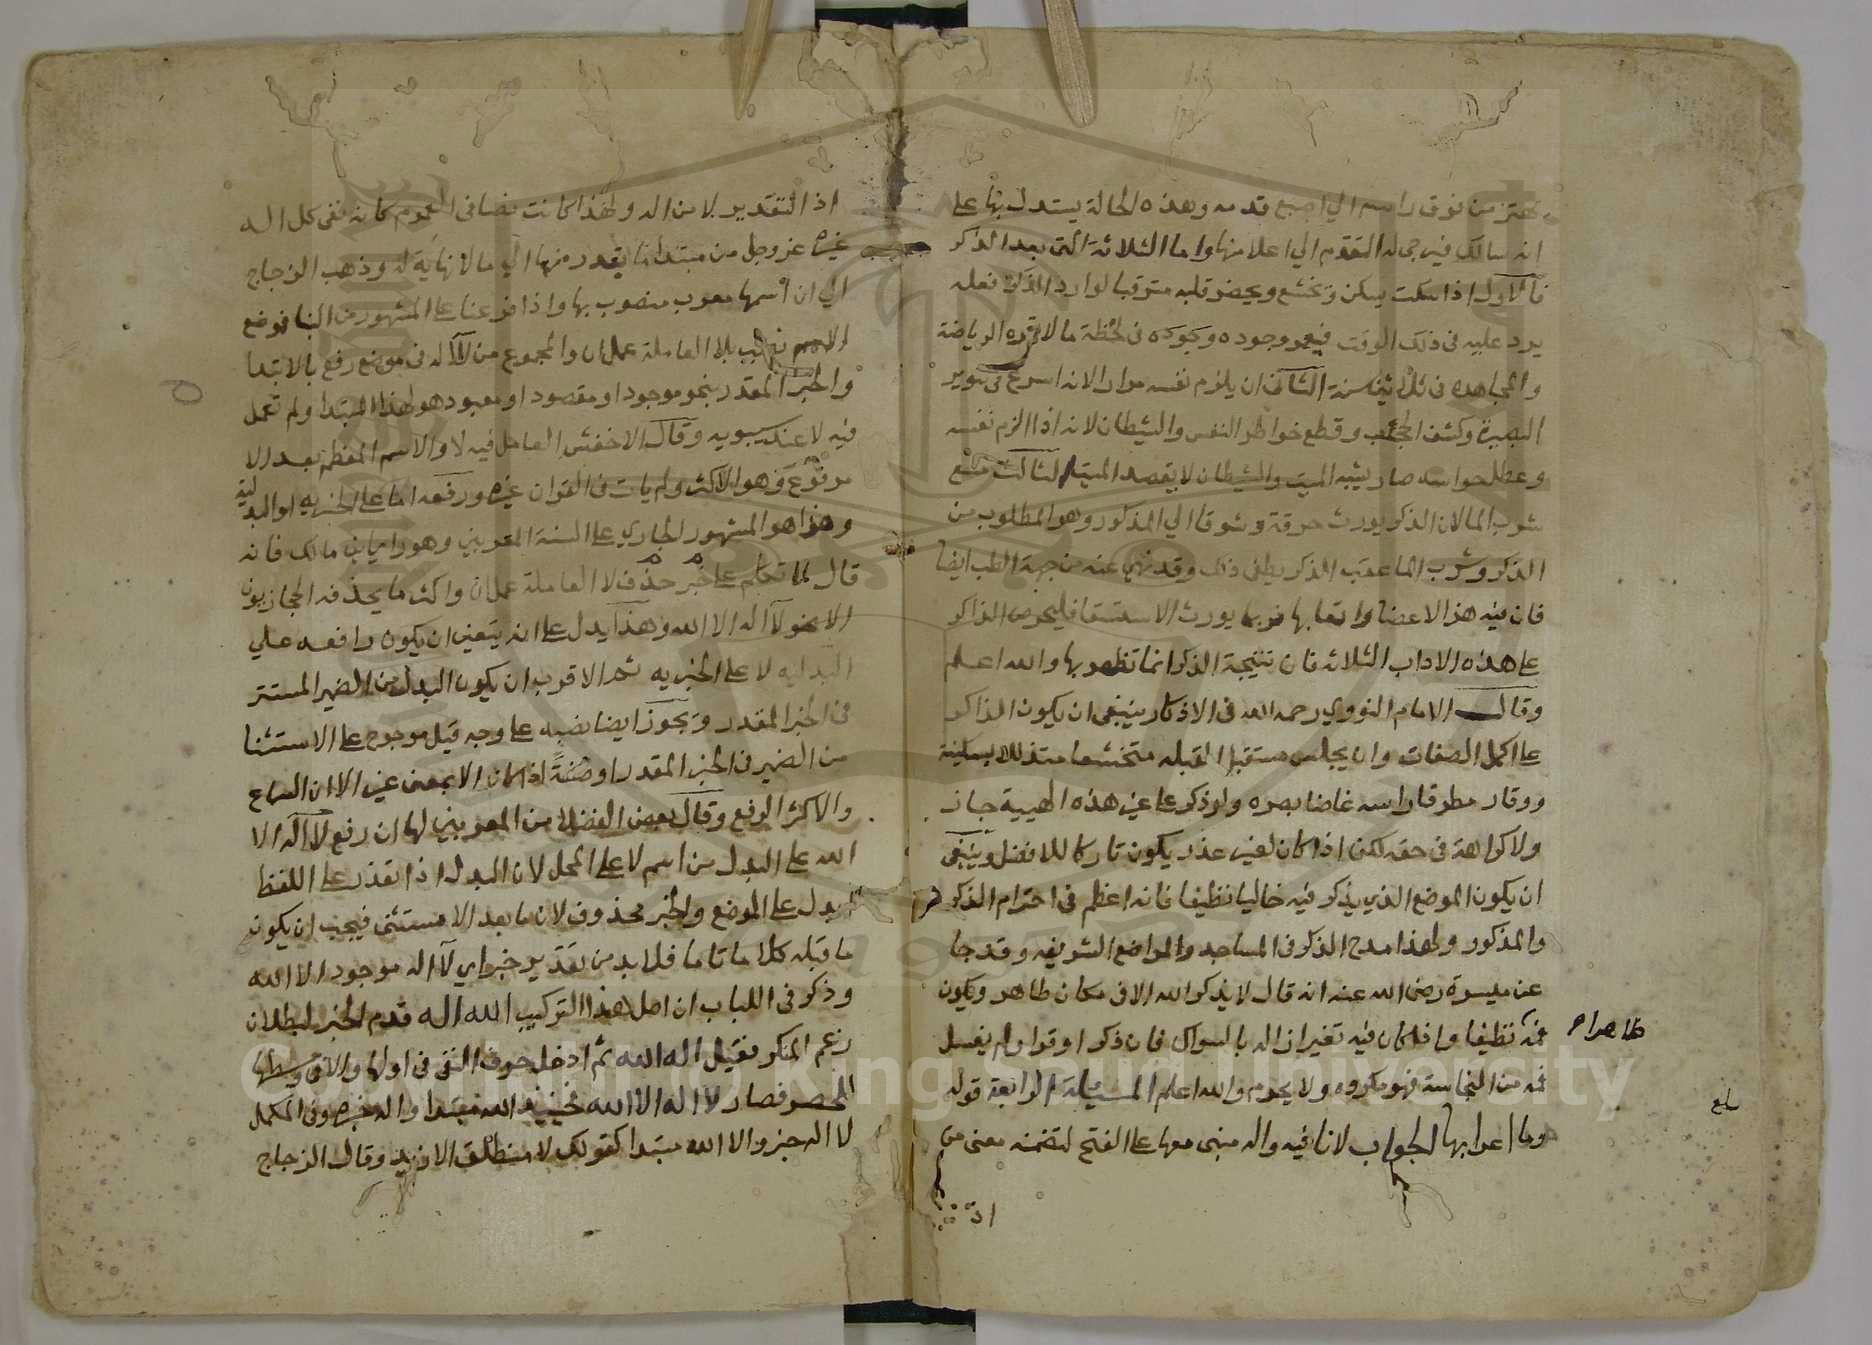 يهتز من فوق راسه الي اصبع قدمه وهذه الحالة يستدل بها على
انه سالك فيرجى له التقدم الي اعلا منها واما الثلاثة التي بعد الذكر
فالاول اذا سكت يسكن ويخشع ويحضر قلبه مترقبا لوارد الذكر فعله
يرد عليه في ذلك الوقت فيعمر وجوده في لحظة ما لا تعمره الرياضة
والمجاهدة في ثلاثين سنة الثاني ان يلزم نفسه مرارا لانه اسرع في تنوير
البصيرة وكشف الحجب وقطع خواطر النفس والشيطان لانه اذا الزم نفسه
وعطل حواسه صار يشبه الميت والشيطان لا يقصد الميت الثالث منع
شرب الما لان الذكر يورث حرقة وشوقا الي المذكور وهو المطلوب من
الذكر وشرب الما عقب الذكر يطفي ذلك وقد نهي عنه من جهة الطب ايضا
فان فيه هذا الاعضا واتعابها فربما يورث الاستسقا فليحرص الذاكر
على هذه الاداب الثلاثه فان نتيجة الذكر انما تظهر بها والله اعلم
وقال الامام النووي رحمه الله في الاذكار ينبغي ان يكون الذاكر
على اكمل الصفات وان يجلس مستقبل القبله متخشعا متذللا بسكينة
ووقار مطرقا راسه غاضا بصره ولو ذكر على غير هذه الهيية جاز
ولا كراهة في حقه لكن اذا كان لغير عذر يكون تاركا للافضل وينبغي
ان يكون الموضع الذي يذكر فيه خاليا نظيفا فانه اعظم في احترام الذكر
والمذكور ولهذا مدح الذكر في المساجد والمواضع الشريفه وقد جا
عن ميسرة رضي الله عنه انه قال لا يذكر الله الا في مكان طاهر ويكون
فمه نظيفا واذا كان فيه تغير ازاله بالسواك فان ذكر او قرا ولم يغسل
ظاهرا م
فمه من النجاسة فهو مكروه ولا يحرم والله اعلم المسيلة الرابعة قوله
وما اعرابها الجواب لا نافيه واله مبني معها على الفتح لتضمنه معنى من
اذ
اذ التقدير لا من اله ولهذا كانت نصا في العموم كانه نفى كل اله
غيره عز وجل من مبتدا ما يقدر منها الي ما لا نهاية له وذهب الزجاج
الي ان اسمها معرب منصوب بها واذا فرعنا على المشهور من البنا فوضع
الاسم نصب بلا العاملة عمل ان والمجموع من لا اله في موضع رفع بالابتدا
والخبر المقدر بنحو موجود او مقصود او معبود هو لهذا المبتدا ولم تعمل
فيه لا عند سيبويه وقال الاخفش العامل فيه لا والاسم المعظم بعد الا
مرفوع وهو الاكثر ولم يات في القران غيره ورفعه اما على الخبريه او البدلية
وهذا هو المشهور الجاري على السنة المعربين وهو راي ابن مالك فانه
قال لما تكلم على خبر حذف لا العاملة عمل ان واكثر ما يحذفه الحجازيون
الا نحو لا اله الا الله وهذا يدل على انه يتعين ان يكون رافعه على
البدايه لا على الخبريه ثم الاقرب ان يكون البدل من الضمير المستتر
في الخبر المقدر ويجوز ايضا نصبه على وجه قيل مرجوح على الاستثنا
من الضمير في الخبر المقدر او صفة اذا كان الا بمعنى غير الا ان السماع
والاكثر الرفع وقال بعض الفضلا من المعربين لها ان رفع لا اله الا
الله على البدل من اسم لا على المحل لان البدل اذا تعذر على اللفظ
ابدل على الموضع والخبر محذوف لان ما بعد الا مستثنى فيجب ان يكون
ما قبله كلاما تاما فلا بد من تقدير خبر اي لا اله موجود الا الله
وذكر في اللباب ان اصل هذا التركيب الله اله قدم الخبر لبطلان
زعم المنكر فقيل اله الله ثم ادخل حرف النفي في اولها والا في وسطها
للحصر فصار لا اله الا الله فحينيذ الله مبتدا واله خبره وفي المكمل
لا اله خبر والا الله مبتدا كقولك لا منطلق الا زيد وقال الزجاج